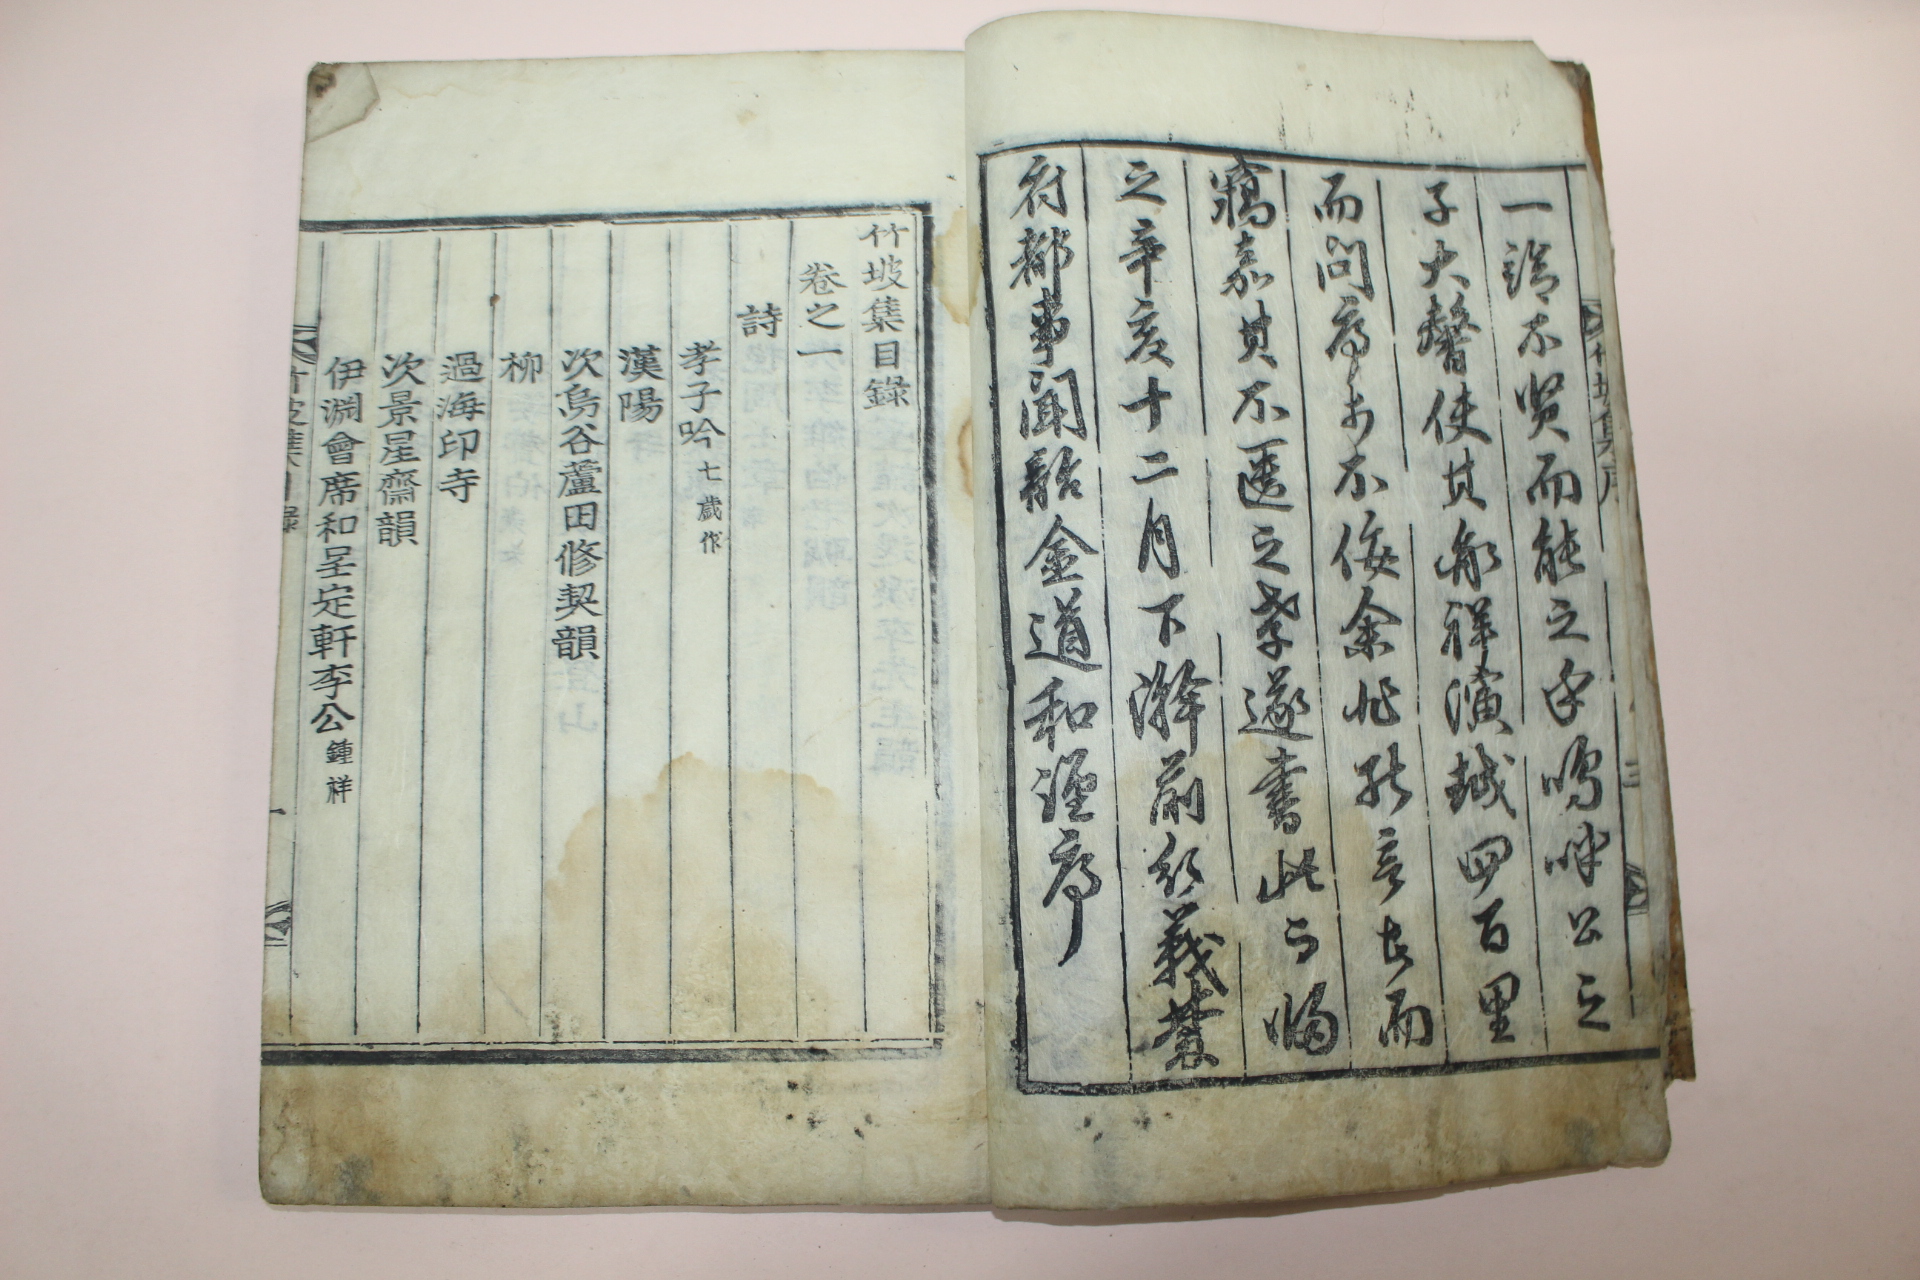 一諾不賢而能之乎嗚呼公之
子大馨使其族祥演越四百里
而問序於不佞余非能言者而
竊嘉其不匱之孝遂書此而歸
之辛亥十二月下澣前行義禁
府都事聞韶金道和謹序
竹坡集目錄
卷之一
詩
孝子吟 七歲作
漢陽
次鳥谷蘆田修契韻
柳
過海印寺
次景星齋韻
伊淵會席和呈定軒李公 鍾祥
竹坡集目錄 一